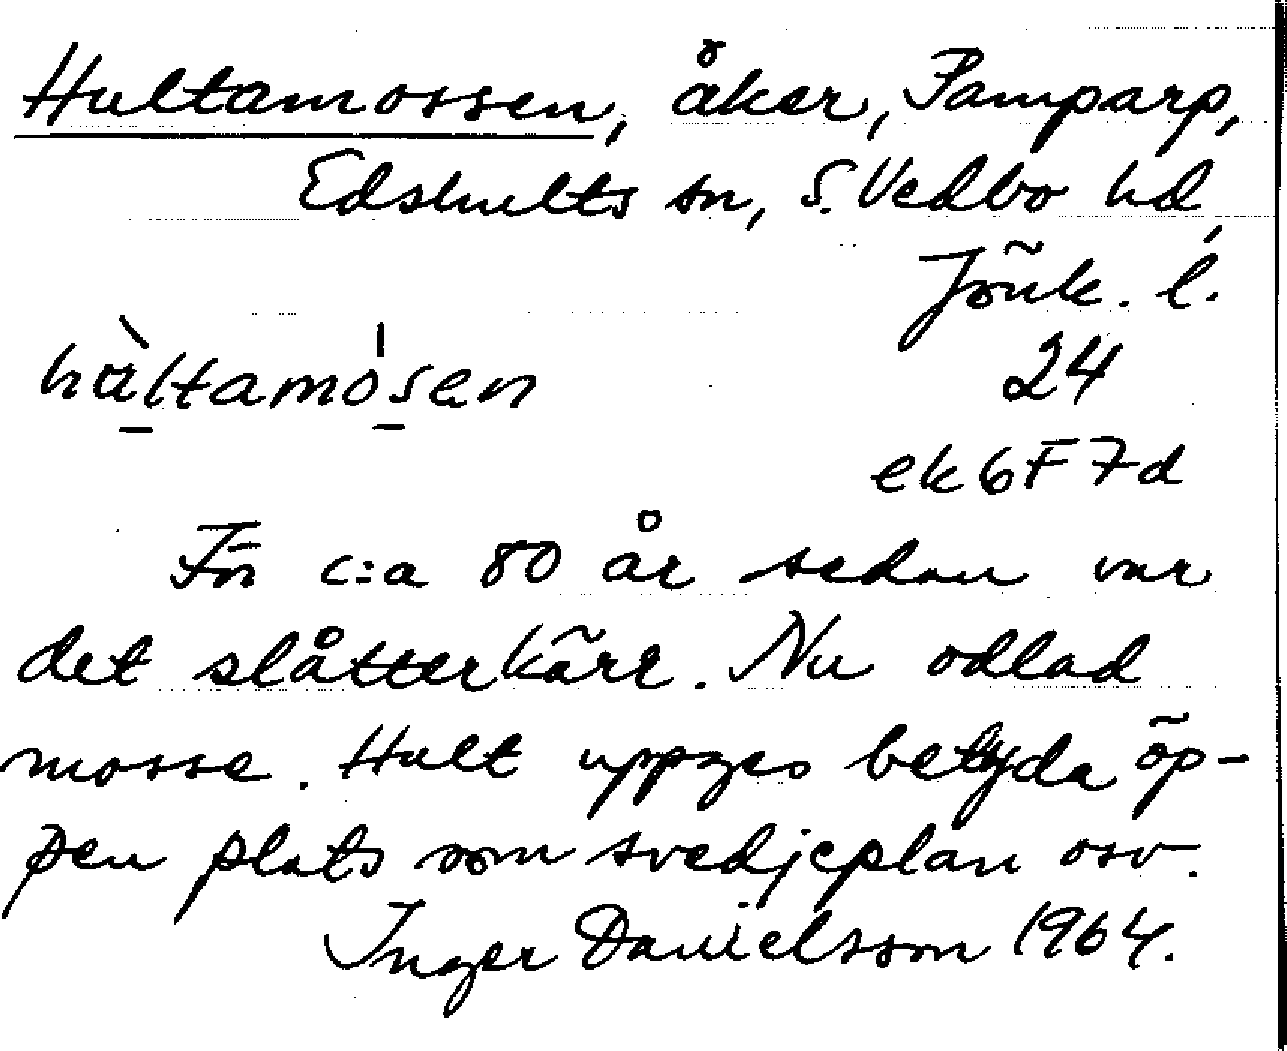 Hultamossen, åker, Pamparp,
Edshults sn, S. Vedbo hd,
Jönk. l.
hàltamósen 24
ek 6F 7d
För c:a 80 år sedan var
det slåtterkärr. Nu odlad
mosse. Hult uppges betyda öp-
pen plats som svedjeplan osv.
Inger Danielsson 1964.